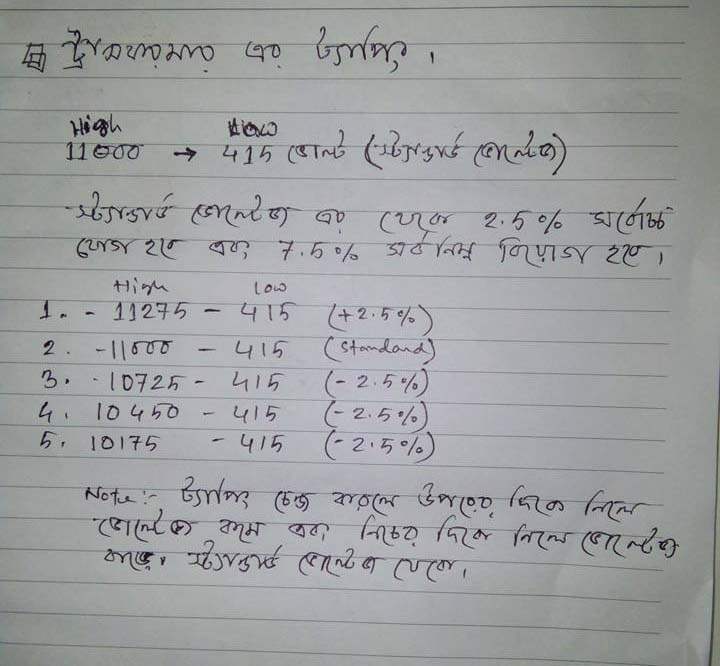 ট্রান্সফরমার এর ট্যাপিং।
High Low
11000 → 415 ভোল্ট (স্ট্যান্ডার্ড ভোল্টেজ)
স্ট্যান্ডার্ড ভোল্টেজ এর থেকে 2.5% সর্বোচ্চ
যোগ হবে এবং 7.5% সর্বনিম্ন বিয়োগ হবে।
High Low
1. - 11275 - 415 (+2.5%)
2. -11000 - 415 (Standard)
3. - 10725 - 415 (- 2.5%)
4. 10450 - 415 (- 2.5%)
5. 10175 - 415 (- 2.5%)
Note:- ট্যাপিং চেঞ্জ করলে উপরের দিকে নিলে
ভোল্টেজ কমে এবং নিচের দিকে নিলে ভোল্টেজ
বাড়ে। স্ট্যান্ডার্ড ভোল্টেজ থেকে।